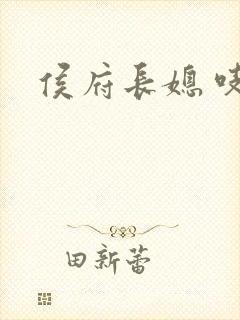 侯府長媳
田新蕾